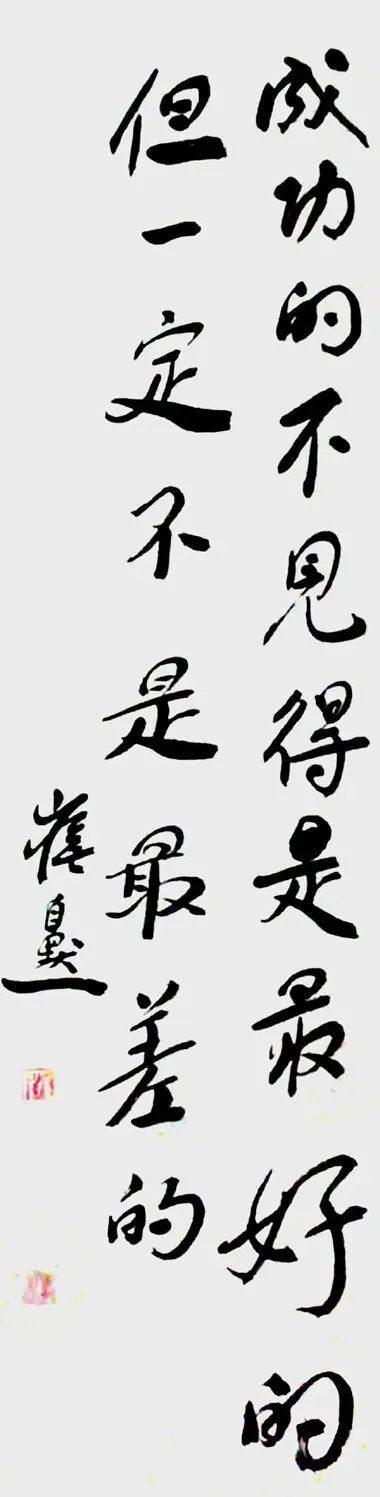 成功的不見得是最好的
但一定不是最差的